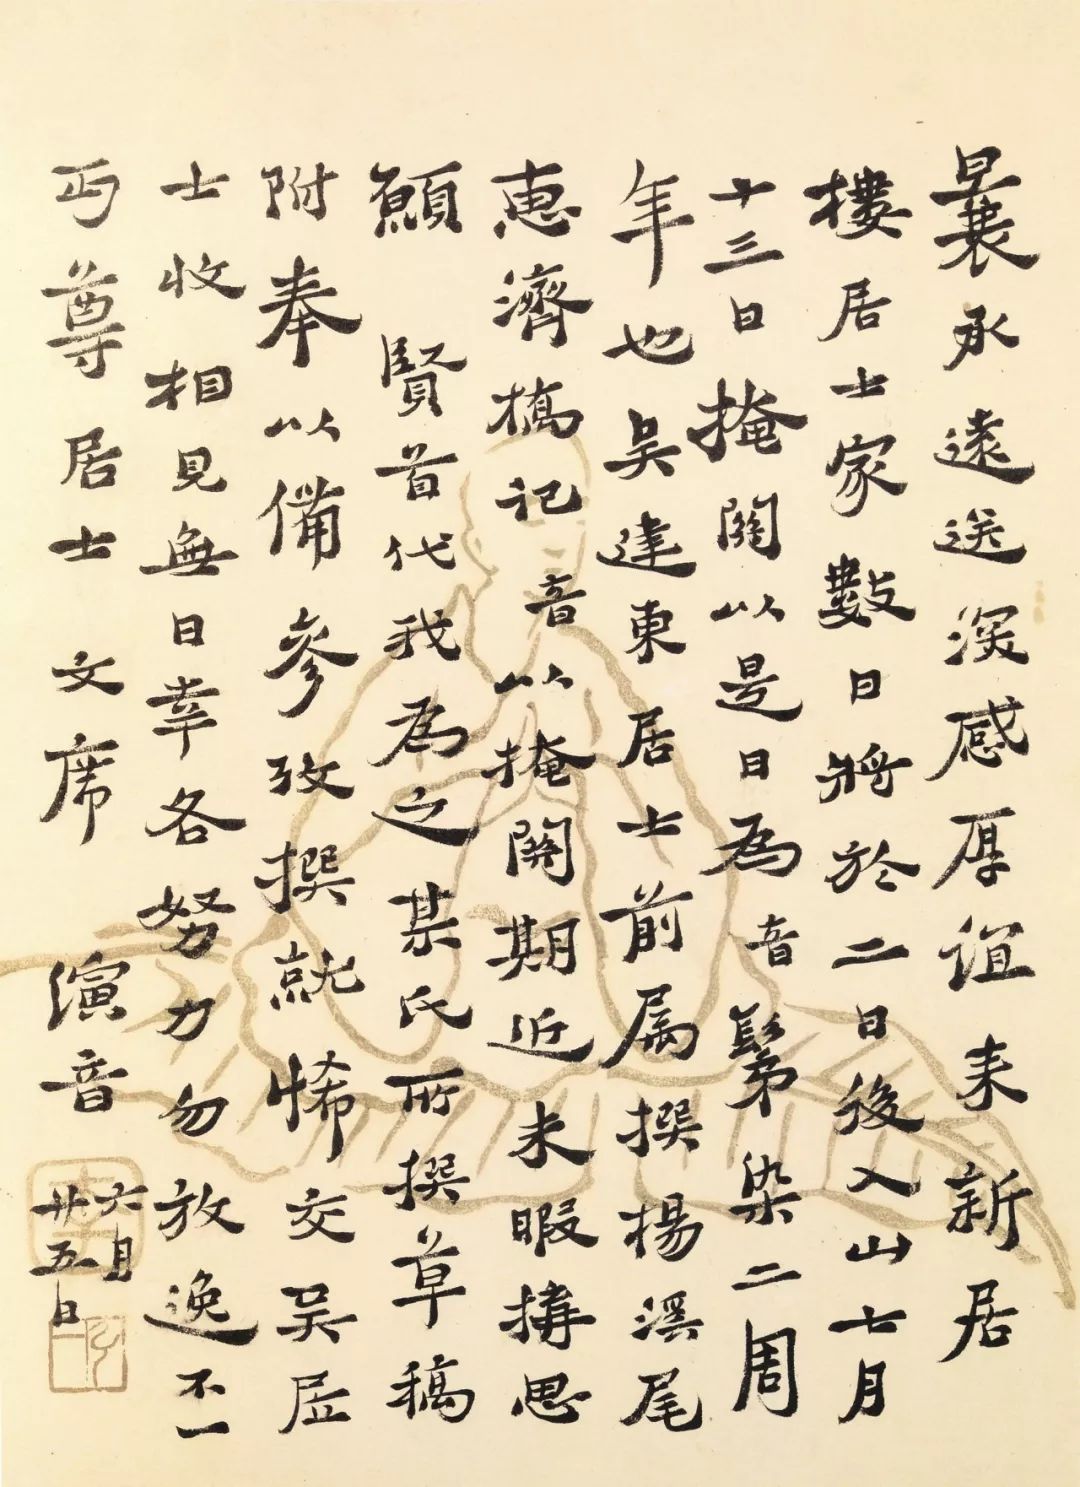 曩承遠送深感厚誼来新居
樓居士家數日將於二日後入山七月
十三日掩關以是日為音鬀染二周
年也吴建東居士前属撰楊溪尾
惠濟橋記音以掩關期近未暇搆思
願賢首代我為之某氏所撰草稿
附奉以備參攷撰就悕交吴居
士收相見無日幸各努力勿放逸不一
丏尊居士文席 演音
六月
廿五日